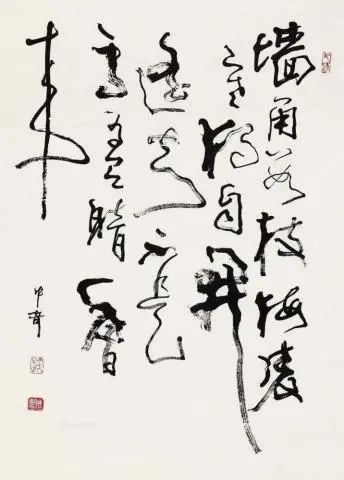 墙角数枝梅凌
寒独自开
遥知不是
雪为有暗香
来